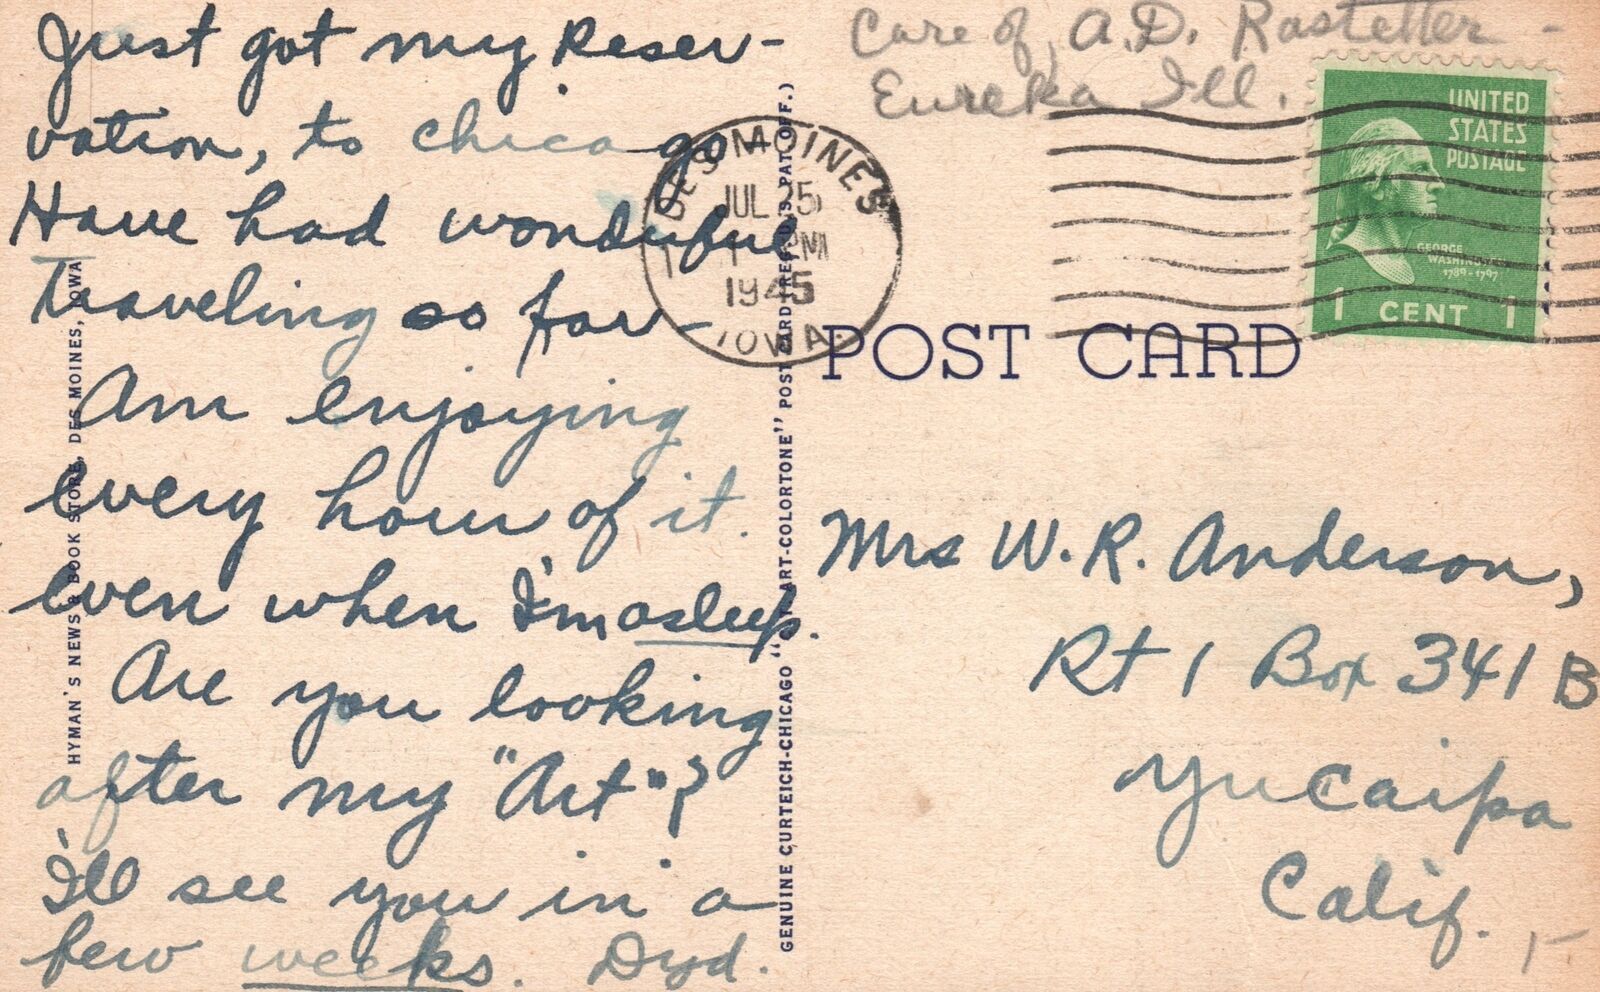 Just got my Reser-
vation, to Chicago -
Have had wonderful
Traveling so far -
Am enjoying
every hour of it.
even when I'm asleep.
Are you looking
after my "Art"?
I'll see you in a
few weeks.
HYMAN'S NEWS & BOOK STORE, DES MOINES, IOWA
GENUINE CURTEICH-CHICAGO "C.T. ART-COLORTONE" POST CARD (REG. U.S. PAT. OFF.)
Care of, A.D. Rastetter -
Eureka Ill.
DES MOINES
JUL 25
PM
1945
IOWA
UNITED
STATES
POSTAGE
GEORGE
WASHINGTON
1789-1797
1 CENT 1
POST CARD
Mrs W. R. Anderson,
Rt 1 Box 341 B
Yucaipa
Calif.